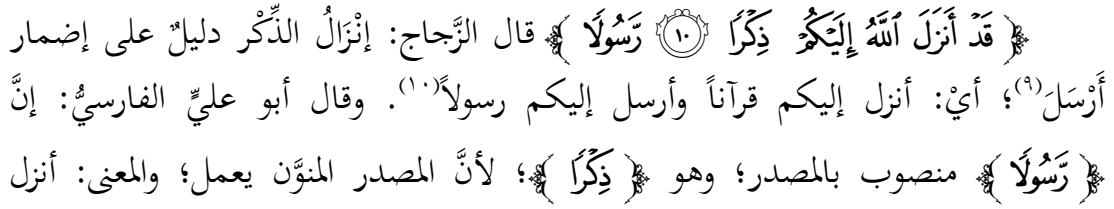 ﴿ قَدْ أَنزَلَ ٱللَّهُ إِلَيْكُمْ ذِكْرًا ۝١٠ رَّسُولًا ﴾ قال الزَّجاج: إنْزَالُ الذِّكْر دليلٌ على إضمار
أَرْسَلَ(٩)؛ أيْ: أنزل إليكم قرآناً وأرسل إليكم رسولاً(١٠). وقال أبو عليٍّ الفارسيُّ: إنَّ
﴿ رَّسُولًا ﴾ منصوب بالمصدر؛ وهو ﴿ ذِكْرًا ﴾؛ لأنَّ المصدر المنوَّن يعمل؛ والمعنى: أنزل